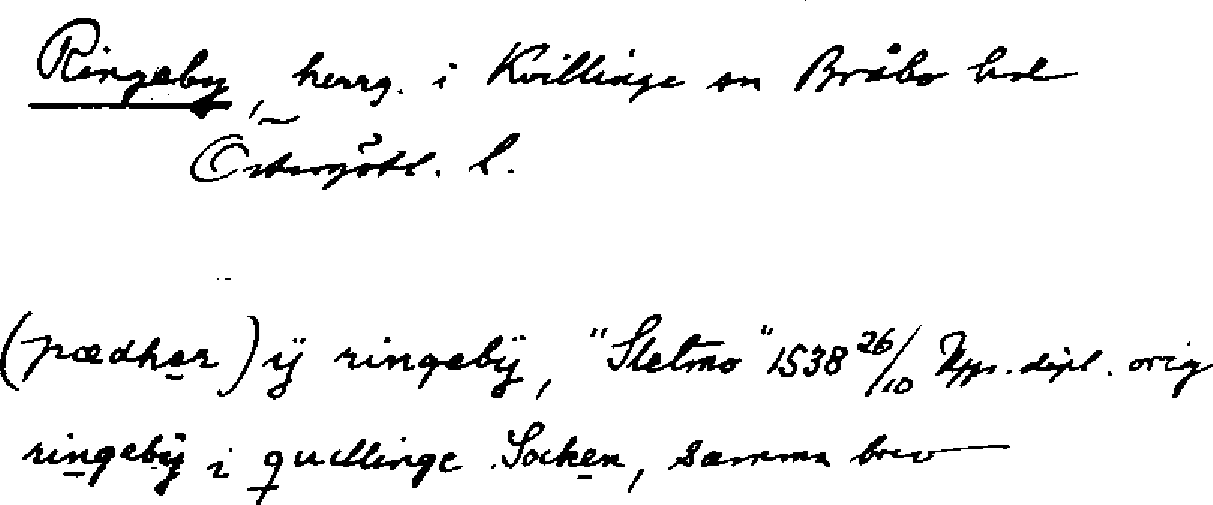 Ringeby, herrg. i Kvillinge sn Bråbo hd
Östergötl. l.
(pædher) ij ringebÿ, "Sletmo" 1538 26/10 Upps. dipl. orig
ringebÿ i quillinge Socken, samma brev